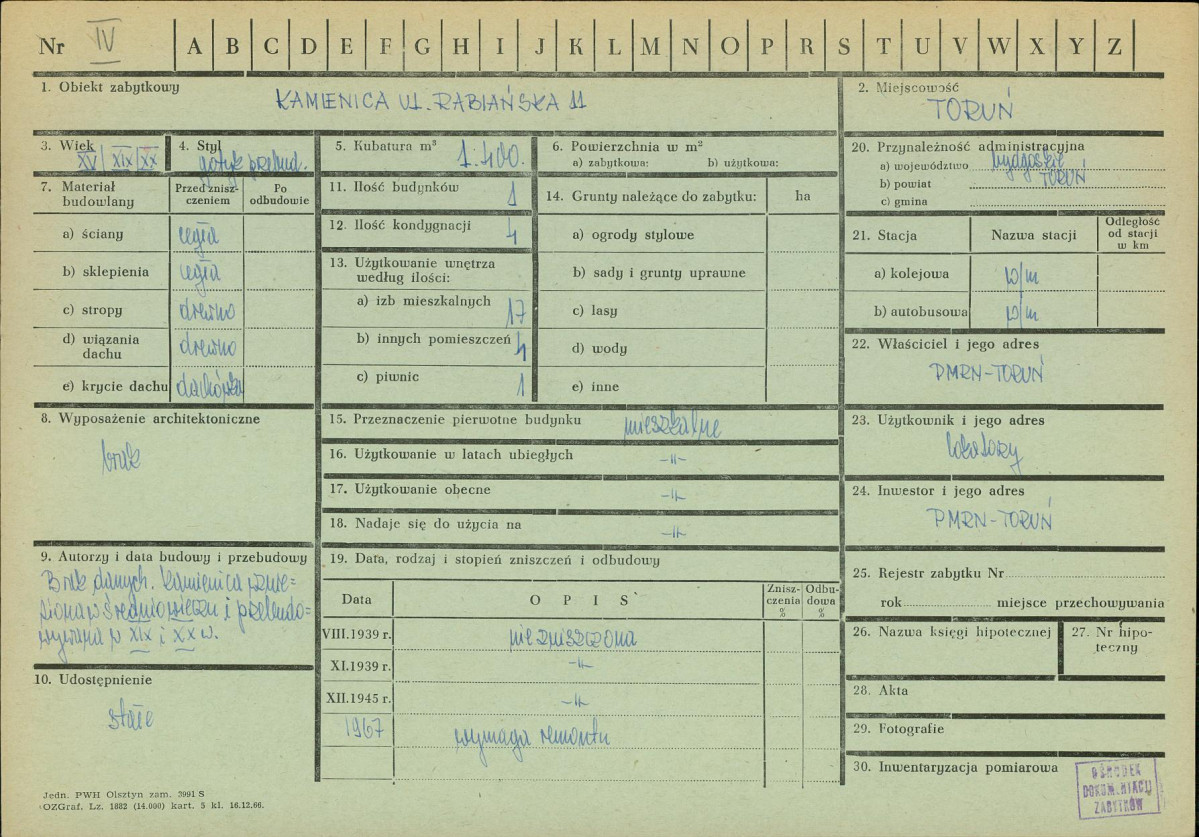 Nr IV A B C D E F G H I J K L M N O P R S T U V W X Y Z
1. Obiekt zabytkowy
KAMIENICA UL. RABIAŃSKA 11
2. Miejscowość
TORUŃ
3. Wiek
XV XIX XX
4. Styl
gotyk przebud.
5. Kubatura m³
1.400.
6. Powierzchnia w m²
a) zabytkowa: b) użytkowa:
20. Przynależność administracyjna
a) województwo bydgoskie
b) powiat TORUŃ
c) gmina
7. Materiał budowlany
Przed znisz-
czeniem
Po
odbudowie
a) ściany cegła
b) sklepienia cegła
c) stropy drewno
d) wiązania
dachu drewno
e) krycie dachu dachówka
11. Ilość budynków 1
12. Ilość kondygnacji 4
13. Użytkowanie wnętrza
według ilości:
a) izb mieszkalnych 17
b) innych pomieszczeń 4
c) piwnic 1
14. Grunty należące do zabytku: ha
a) ogrody stylowe
b) sady i grunty uprawne
c) lasy
d) wody
e) inne
21. Stacja
Nazwa stacji
Odległość
od stacji
w km
a) kolejowa w/m
b) autobusowa w/m
22. Właściciel i jego adres
PMRN-TORUŃ
8. Wyposażenie architektoniczne
brak
15. Przeznaczenie pierwotne budynku mieszkalne
16. Użytkowanie w latach ubiegłych -॥-
17. Użytkowanie obecne -॥-
18. Nadaje się do użycia na -॥-
23. Użytkownik i jego adres
lokatorzy
24. Inwestor i jego adres
PMRN-TORUŃ
9. Autorzy i data budowy i przebudowy
Brak danych. Kamienica wznie=
siona w średniowieczu i przebudo=
wywana w XIX i XX w.
10. Udostępnienie
stałe
19. Data, rodzaj i stopień zniszczeń i odbudowy
Data
OPIS
Znisz-
czenia
%
Odbu-
dowa
%
VIII.1939 r. niezniszczona
XI.1939 r. -॥-
XII.1945 r. -॥-
1967 wymaga remontu
25. Rejestr zabytku Nr
rok miejsce przechowywania
26. Nazwa księgi hipotecznej
27. Nr hipo-
teczny
28. Akta
29. Fotografie
30. Inwentaryzacja pomiarowa
OŚRODEK
DOKUMENTACJI
ZABYTKÓW
Jedn. PWH Olsztyn zam. 3991 S
OZGraf. Lz. 1882 (14.000) kart. 5 kl. 16.12.66.